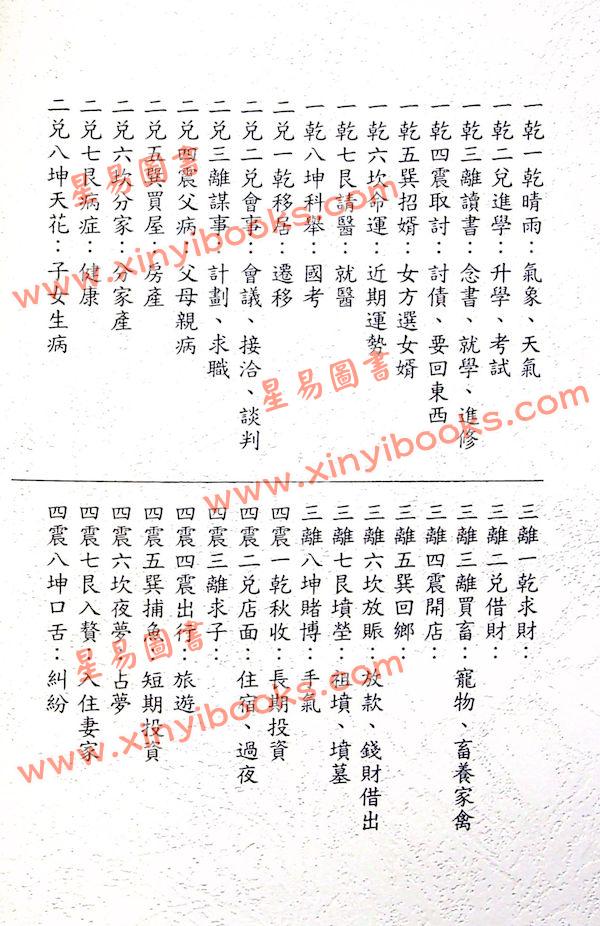 一乾一乾晴雨：氣象、天氣
一乾二兌進學：升學、考試
一乾三離讀書：念書、就學、進修
一乾四震取討：討債、要回東西
一乾五巽招婿：女方選女婿
一乾六坎命運：近期運勢
一乾七艮請醫：就醫
一乾八坤科舉：國考
二兌一乾移居：遷移
二兌二兌會事：會議、接洽、談判
二兌三離謀事：計劃、求職
二兌四震父病：父母親病
二兌五巽買屋：房產
二兌六坎分家：分家產
二兌七艮病症：健康
二兌八坤天花：子女生病
三離一乾求財：
三離二兌借財：
三離三離買畜：寵物、畜養家禽
三離四震開店：
三離五巽回鄉：
三離六坎放賬：放款、錢財借出
三離七艮墳塋：祖墳、墳墓
三離八坤賭博：手氣
四震一乾秋收：長期投資
四震二兌店面：住宿、過夜
四震三離求子：
四震四震出行：旅遊
四震五巽捕魚：短期投資
四震六坎夜夢：占夢
四震七艮入贅：入住妻家
四震八坤口舌：糾紛
星易圖書
www.xinyibooks.com
星易圖書
www.xinyibooks.com
星易圖書
www.xinyibooks.com